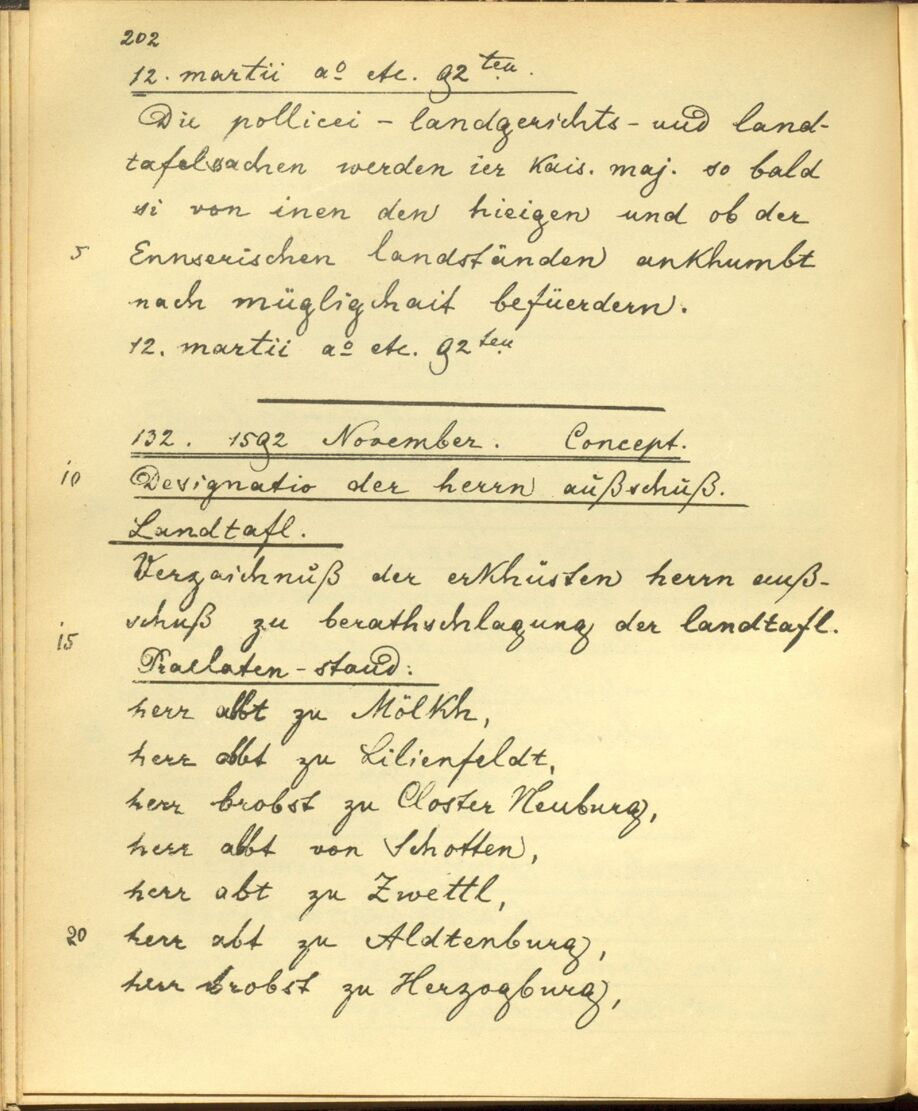 202
12. martii aº etc. 92ten.
Die pollicei - landgerichts - und land-
tafelsachen werden ier Kais. maj. so bald
si von inen den hieigen und ob der
5 Ennserischen landständen ankhumbt
nach mügligchait befüerdern.
12. martii aº etc. 92ten
132. 1592 November. Concept.
10 Designatio der herrn außschuß.
Landtafl.
Verzaichnuß der erkhüsten herrn auß-
schuß zu berathschlagung der landtafl.
15
Praelaten - stand:
herr abbt zu Mölkh,
herr abbt zu Lilienfeldt,
herr brobst zu Closter Neuburg,
herr abbt von Schotten,
herr abt zu Zwettl,
20 herr abt zu Aldtenburg,
herr brobst zu Herzogburg,